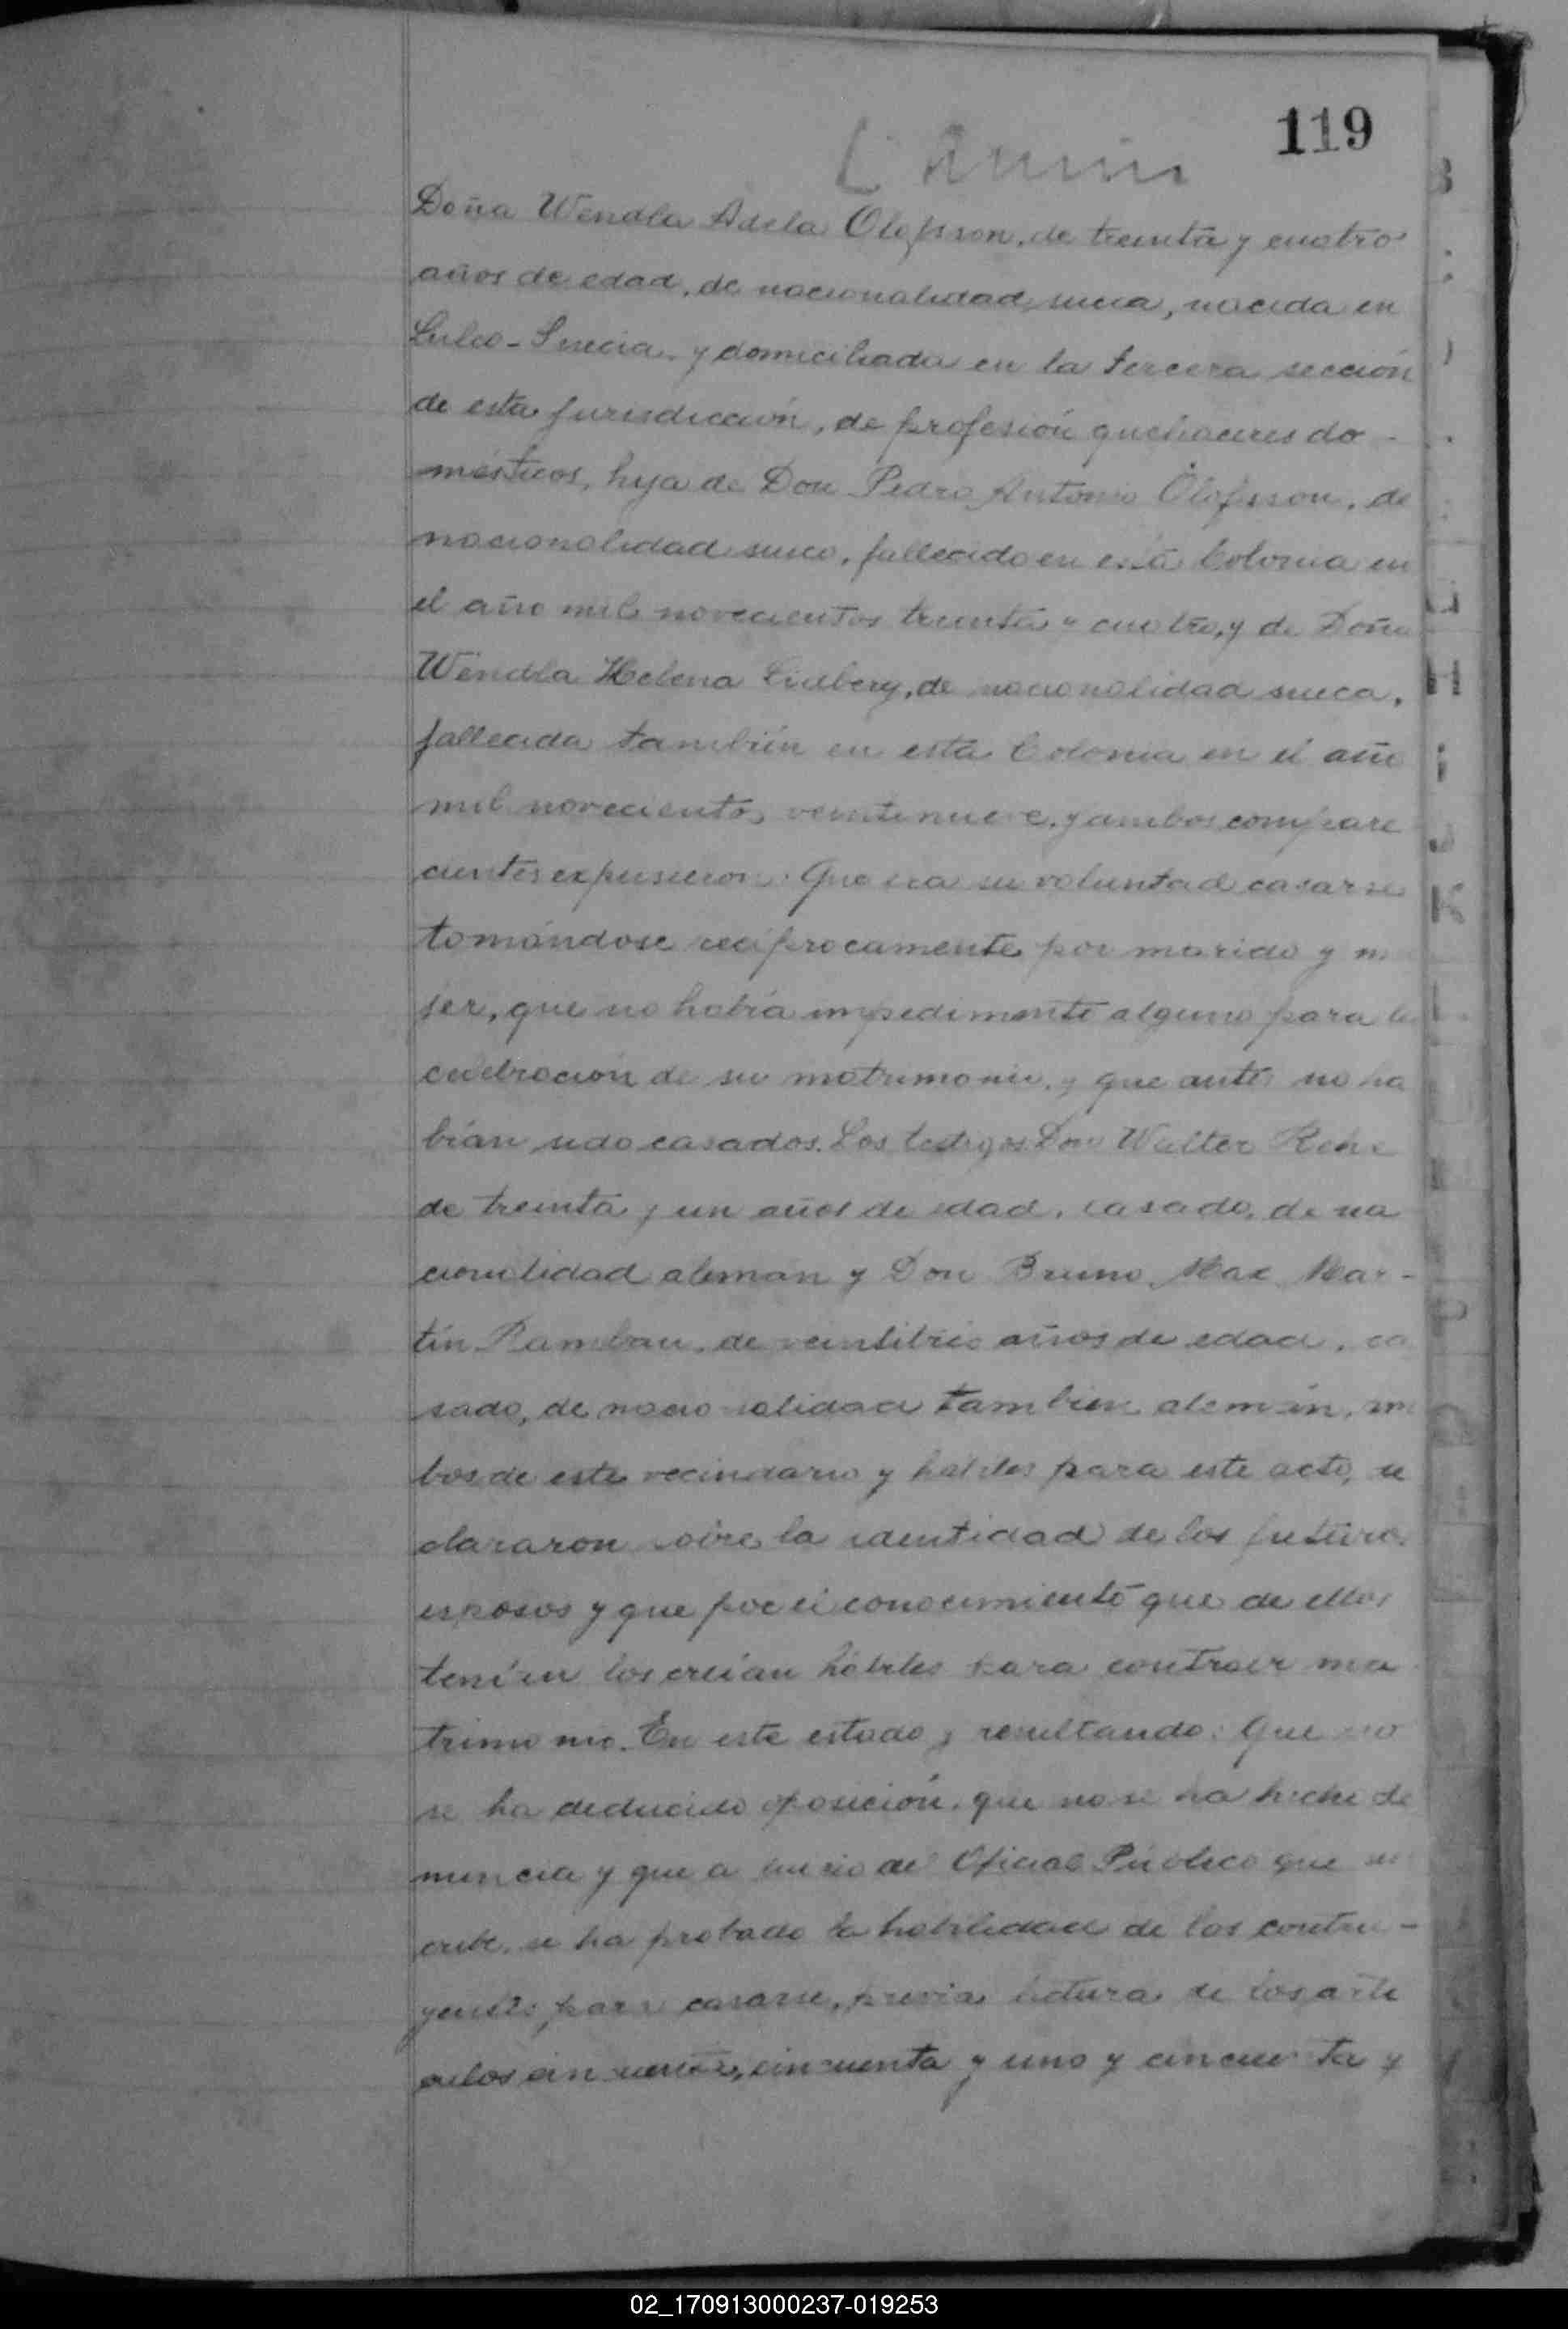 119
Doña Wendla Adela Olofsson, de treinta y cuatro
años de edad, de nacionalidad sueca, nacida en
Luleo - Suecia y domiciliada en la tercera sección
de esta jurisdicción, de profesión quehaceres do-
mésticos, hija de Don Pedro Antonio Olofsson, de
nacionalidad sueco, fallecido en esta Colonia en
el año mil novecientos treinta y cuatro, y de Doña
Wendla Helena Lidberg, de nacionalidad sueca,
fallecida también en esta Colonia en el año
mil novecientos veintinueve, y ambos compare
cientes expusieron: Que era su voluntad casarse
tomándose recíprocamente por marido y m
jer, que no había impedimento alguno para la
celebración de su matrimonio, y que antes no ha
bían sido casados. Los testigos Don Walter
de treinta y un años de edad, casado, de na
cionalidad alemán y Don Bruno Max Mar-
tín Rambau, de veintitrés años de edad, ca
sado, de nacionalidad también alemán, am
bos de este vecindario y hábiles para este acto,
clararon sobre la identidad de los futuros
esposos y que por el conocimiento que de ellos
tenían los creían hábiles para contraer ma
trimonio. En este estado y resultando: Que no
se ha deducido oposición, que no se ha hecho de
nuncia y que a juicio del Oficial Público que sus
cribe, se ha probado la habilidad de los contra-
yentes para casarse, previa lectura de los artí
culos cincuenta, cincuenta y uno y cincuenta y
02_170913000237-019253